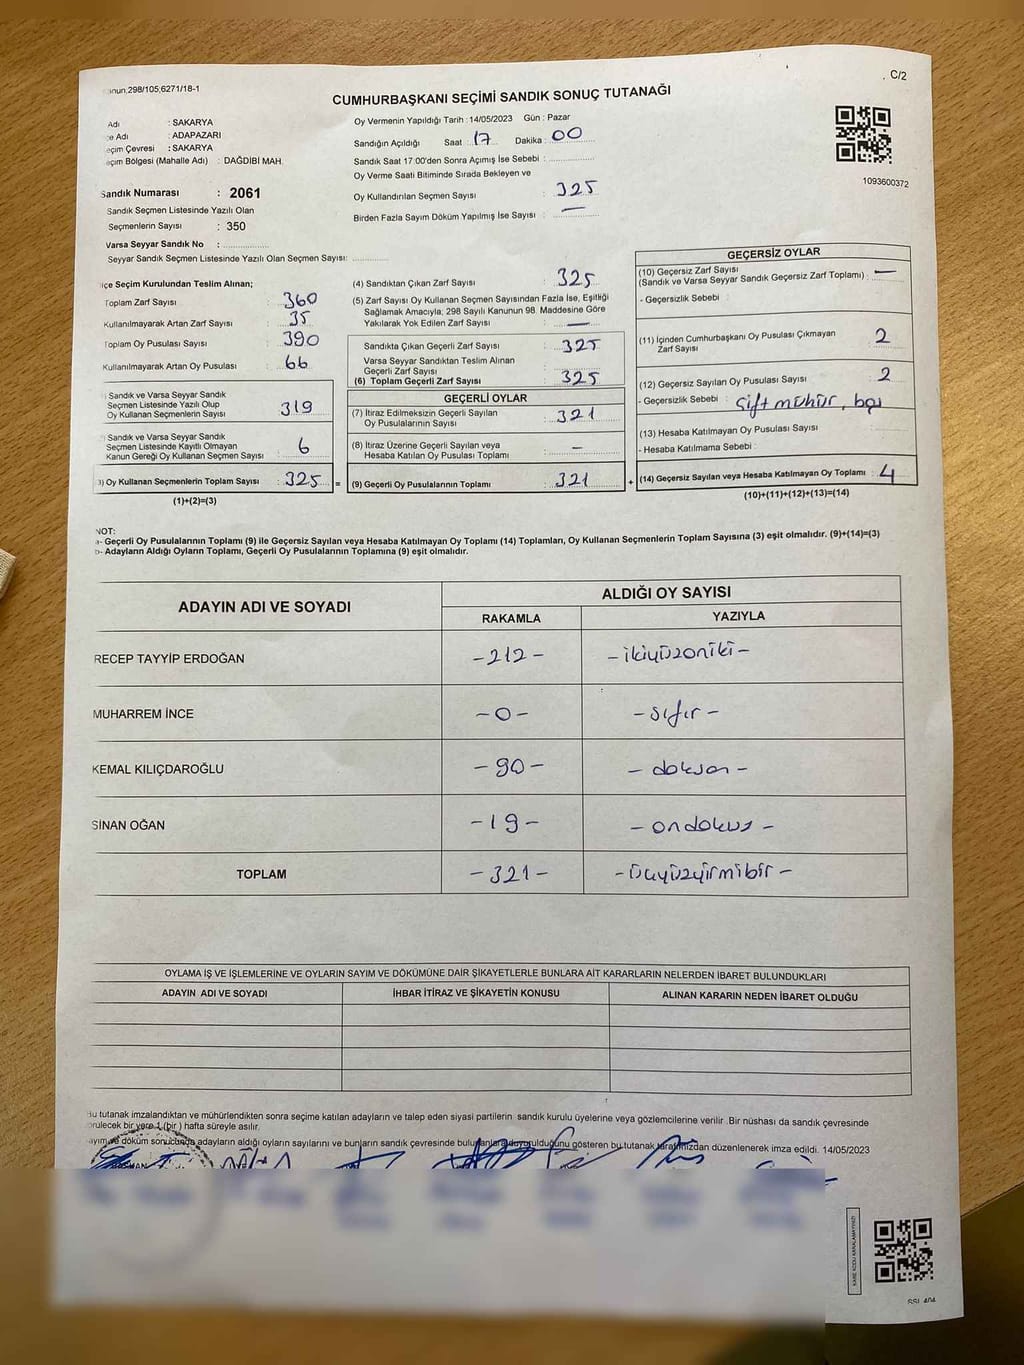 C/2
298/105;6271/18-1
CUMHURBAŞKANI SEÇİMİ SANDIK SONUÇ TUTANAĞI
Adı : SAKARYA
Adı : ADAPAZARI
Çevresi : SAKARYA
Bölgesi (Mahalle Adı) : DAĞDİBİ MAH.
Sandık Numarası : 2061
Sandık Seçmen Listesinde Yazılı Olan
Seçmenlerin Sayısı : 350
Varsa Seyyar Sandık No :
Seyyar Sandık Seçmen Listesinde Yazılı Olan Seçmen Sayısı:
Oy Vermenin Yapıldığı Tarih : 14/05/2023 Gün : Pazar
Sandığın Açıldığı Saat 17 Dakika : 00
Sandık Saat 17:00'den Sonra Açımış İse Sebebi :
Oy Verme Saati Bitiminde Sırada Bekleyen ve
Oy Kullandırılan Seçmen Sayısı : 325
Birden Fazla Sayım Döküm Yapılmış İse Sayısı : —
1093600372
Seçim Kurulundan Teslim Alınan;
Toplam Zarf Sayısı : 360
Kullanılmayarak Artan Zarf Sayısı : 35
Toplam Oy Pusulası Sayısı : 390
Kullanılmayarak Artan Oy Pusulası : 66
) Sandık ve Varsa Seyyar Sandık
Seçmen Listesinde Yazılı Olup
Oy Kullanan Seçmenlerin Sayısı : 319
) Sandık ve Varsa Seyyar Sandık
Seçmen Listesinde Kayıtlı Olmayan
Kanun Gereği Oy Kullanan Seçmen Sayısı : 6
3) Oy Kullanan Seçmenlerin Toplam Sayısı : 325 =
(1)+(2)=(3)
(4) Sandıktan Çıkan Zarf Sayısı : 325
(5) Zarf Sayısı Oy Kullanan Seçmen Sayısından Fazla İse, Eşitliği
Sağlamak Amacıyla; 298 Sayılı Kanunun 98. Maddesine Göre
Yakılarak Yok Edilen Zarf Sayısı : —
Sandıkta Çıkan Geçerli Zarf Sayısı : 325
Varsa Seyyar Sandıktan Teslim Alınan
Geçerli Zarf Sayısı :
(6) Toplam Geçerli Zarf Sayısı : 325
GEÇERLİ OYLAR
(7) İtiraz Edilmeksizin Geçerli Sayılan
Oy Pusulalarının Sayısı : 321
(8) İtiraz Üzerine Geçerli Sayılan veya
Hesaba Katılan Oy Pusulası Toplamı : —
(9) Geçerli Oy Pusulalarının Toplamı : 321 +
GEÇERSİZ OYLAR
(10) Geçersiz Zarf Sayısı
(Sandık ve Varsa Seyyar Sandık Geçersiz Zarf Toplamı) : —
- Geçersizlik Sebebi :
(11) İçinden Cumhurbaşkanı Oy Pusulası Çıkmayan
Zarf Sayısı : 2
(12) Geçersiz Sayılan Oy Pusulası Sayısı : 2
- Geçersizlik Sebebi : çift mühür, boş
(13) Hesaba Katılmayan Oy Pusulası Sayısı :
- Hesaba Katılmama Sebebi :
(14) Geçersiz Sayılan veya Hesaba Katılmayan Oy Toplamı : 4
(10)+(11)+(12)+(13)=(14)
NOT:
a- Geçerli Oy Pusulalarının Toplamı (9) ile Geçersiz Sayılan veya Hesaba Katılmayan Oy Toplamı (14) Toplamları, Oy Kullanan Seçmenlerin Toplam Sayısına (3) eşit olmalıdır. (9)+(14)=(3)
b- Adayların Aldığı Oyların Toplamı, Geçerli Oy Pusulalarının Toplamına (9) eşit olmalıdır.
ADAYIN ADI VE SOYADI ALDIĞI OY SAYISI
RAKAMLA YAZIYLA
RECEP TAYYİP ERDOĞAN -212- -ikiyüzoniki-
MUHARREM İNCE -0- -sıfır-
KEMAL KILIÇDAROĞLU -90- -doksan-
SİNAN OĞAN -19- -ondokuz-
TOPLAM -321- -üçyüzyirmibir-
OYLAMA İŞ VE İŞLEMLERİNE VE OYLARIN SAYIM VE DÖKÜMÜNE DAİR ŞİKAYETLERLE BUNLARA AİT KARARLARIN NELERDEN İBARET BULUNDUKLARI
ADAYIN ADI VE SOYADI İHBAR İTİRAZ VE ŞİKAYETİN KONUSU ALINAN KARARIN NEDEN İBARET OLDUĞU
Bu tutanak imzalandıktan ve mühürlendikten sonra seçime katılan adayların ve talep eden siyasi partilerin sandık kurulu üyelerine veya gözlemcilerine verilir. Bir nüshası da sandık çevresinde
bir yere 1 (bir) hafta süreyle asılır.
ve döküm sonucunda adayların aldığı oyların sayılarını ve bunların sandık çevresinde bulunanlara duyurulduğunu gösteren bu tutanak tarafımızdan düzenlenerek imza edildi. 14/05/2023